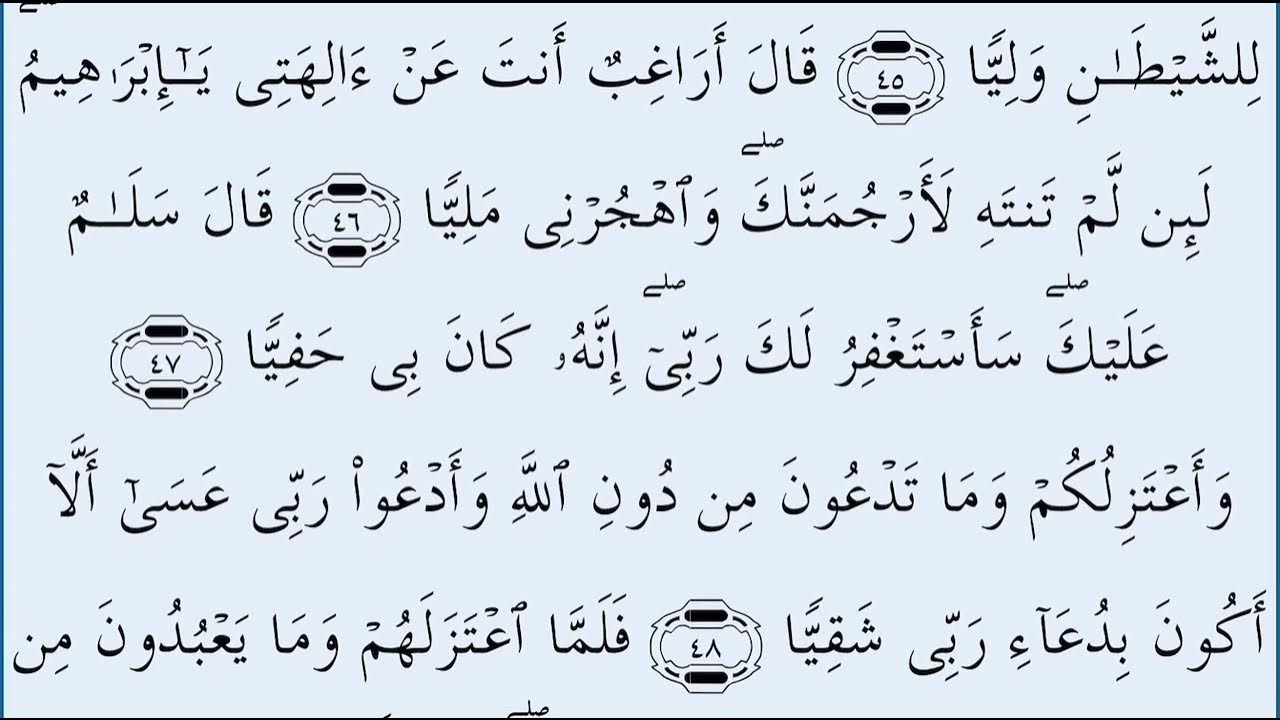 لِلشَّيْطَـٰنِ وَلِيًّا ٤٥ قَالَ أَرَاغِبٌ أَنتَ عَنْ ءَالِهَتِى يَـٰٓإِبْرَٰهِيمُ
لَئِن لَّمْ تَنتَهِ لَأَرْجُمَنَّكَ ۖ وَٱهْجُرْنِى مَلِيًّا ٤٦ قَالَ سَلَـٰمٌ
عَلَيْكَ ۖ سَأَسْتَغْفِرُ لَكَ رَبِّىٓ ۖ إِنَّهُۥ كَانَ بِى حَفِيًّا ٤٧
وَأَعْتَزِلُكُمْ وَمَا تَدْعُونَ مِن دُونِ ٱللَّهِ وَأَدْعُوا۟ رَبِّى عَسَىٰٓ أَلَّآ
أَكُونَ بِدُعَآءِ رَبِّى شَقِيًّا ٤٨ فَلَمَّا ٱعْتَزَلَهُمْ وَمَا يَعْبُدُونَ مِن